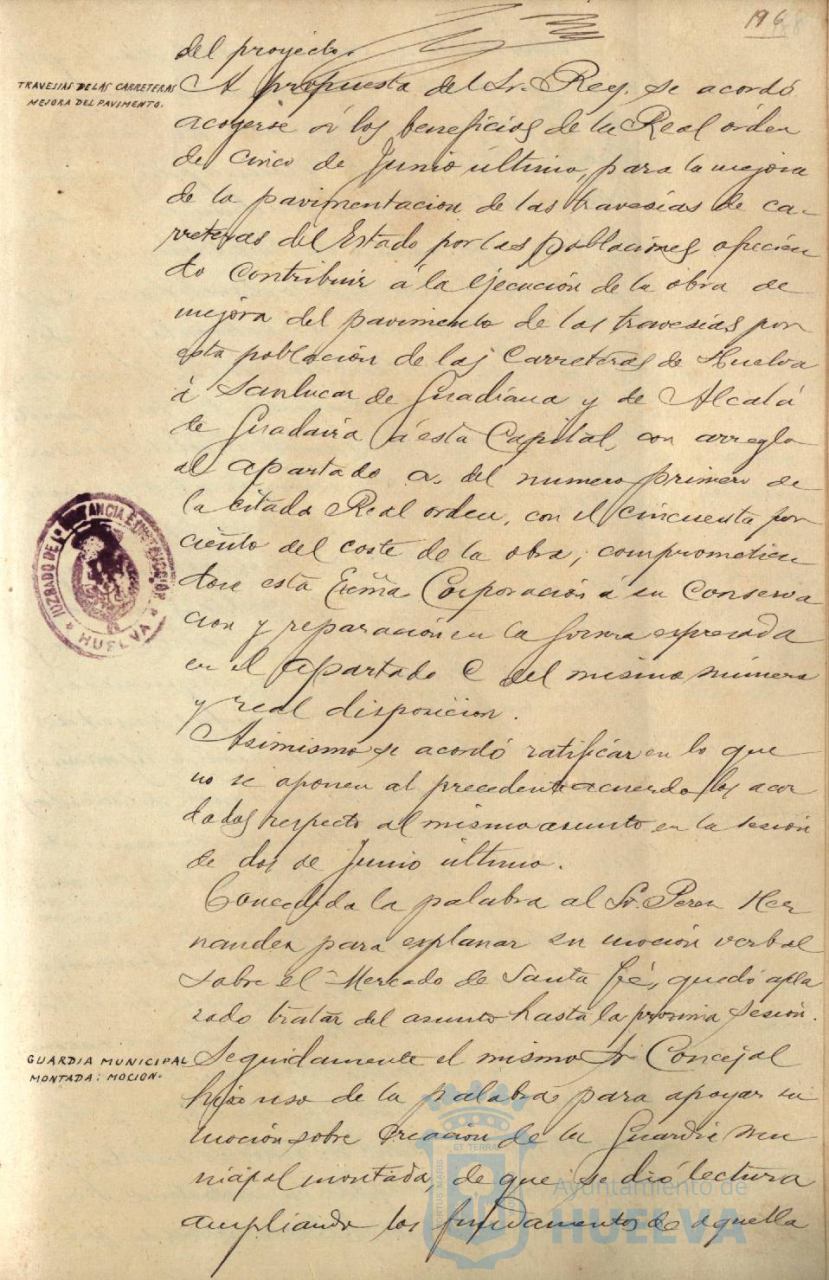 196
del proyecto.
TRAVESIAS DE LAS CARRETERAS
MEJORA DEL PAVIMENTO.
A propuesta del Sr. Rey, se acordó
acogerse á los beneficios de la Real órden
de cinco de Junio último, para la mejora
de la pavimentacion de las travesías de ca-
rreteras del Estado por las poblaciones ofrecien
do contribuir á la ejecución de la obra de
mejora del pavimento de las travesías por
esta población de las Carreteras de Huelva
á Sanlucar de Guadiana y de Alcalá
de Guadaira á esta Capital, con arreglo
al apartado a. del numero primero de
la citada Real orden, con el cincuenta por
ciento del coste de la obra, comprometien
dose esta Excma Corporación á su conserva
cion y reparación en la forma expresada
en el apartado C del mismo número
y real disposicion.
Asimismo se acordó ratificar en lo que
no se oponen al precedente acuerdo los acor
dados respecto al mismo asunto en la sesión
de dos de Junio último.
Concedida la palabra al Sr. Perez Her
nandez para explanar su moción verbal
sobre el Mercado de Santa Fé, quedó apla
zado tratar del asunto hasta la proxima sesión.
GUARDIA MUNICIPAL
MONTADA: MOCION.
Seguidamente el mismo Sr Concejal
hizo uso de la palabra para apoyar su
moción sobre creación de la Guardia mu
nicipal montada, de que se dió lectura
ampliando los fundamentos de aquella
JUZGADO DE 1ª INSTANCIA E INSTRUCCIÓN
* HUELVA *
Ayuntamiento de
HUELVA